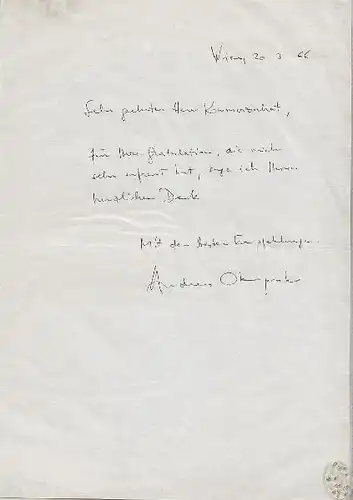 Wien, 20 3 66
Sehr geehrter Herr Kommerzialrat,
für Ihre Gratulation, die mich
sehr erfreut hat, sage ich Ihnen
herzlichen Dank
Mit den besten Empfehlungen
Andreas Okopenko